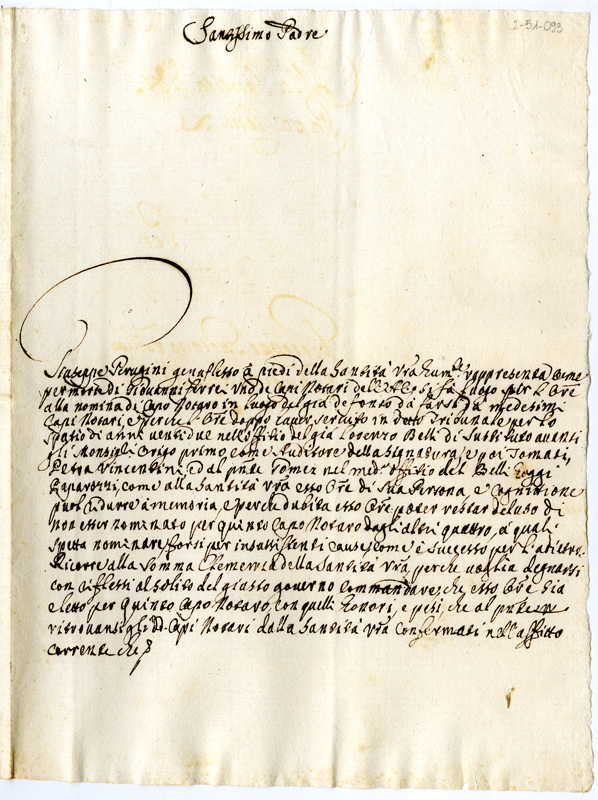 2-51-093
Santissimo Padre
Giuseppe Perugini genuflesso à piedi della Santità Vrã hum.e rappresenta come
per morte di Giovanni Ferre Uno de Capi Notari dell'A.C. si fà luogo per l'Orẽ
alla nomina di Capo Notaro in luogo del già defonto da farsi da medesimi
Capi Notari, e perche l'Orẽ doppo haver servito in detto Tribunale per lo
spatio di anni venti due nell'offitio del già Lorenzo Belli di Sustituto avanti
gli Monsig.li Origo primo, come Auditore della Signatura, e poi Tomati,
Petra Vincentini, ed al pnte Gomez nel med.o offitio del Belli hoggi
, come alla Santità Vrã esso Orẽ di Sua Persona, e cognitione
puol ridurre à memoria, e perche dubita esso Orẽ poter restar deluso di
non esser nominato per quinto Capo Notaro dagli altri quattro, à quali
spetta nominare forsi per insussistenti cause, come è successo per l'adietro.
Ricorre alla somma Clemenza della Santità Vrã, perche voglia degnarsi
con riflessi al solito del giusto governo commandare, che esso Orẽ sia
eletto per quinto Capo Notaro, con quelli honori, e pesi, che al pnte
ritrovansi gli dd. Capi Notari dalla Santità Vrã confermati nell'affitto
corrente che